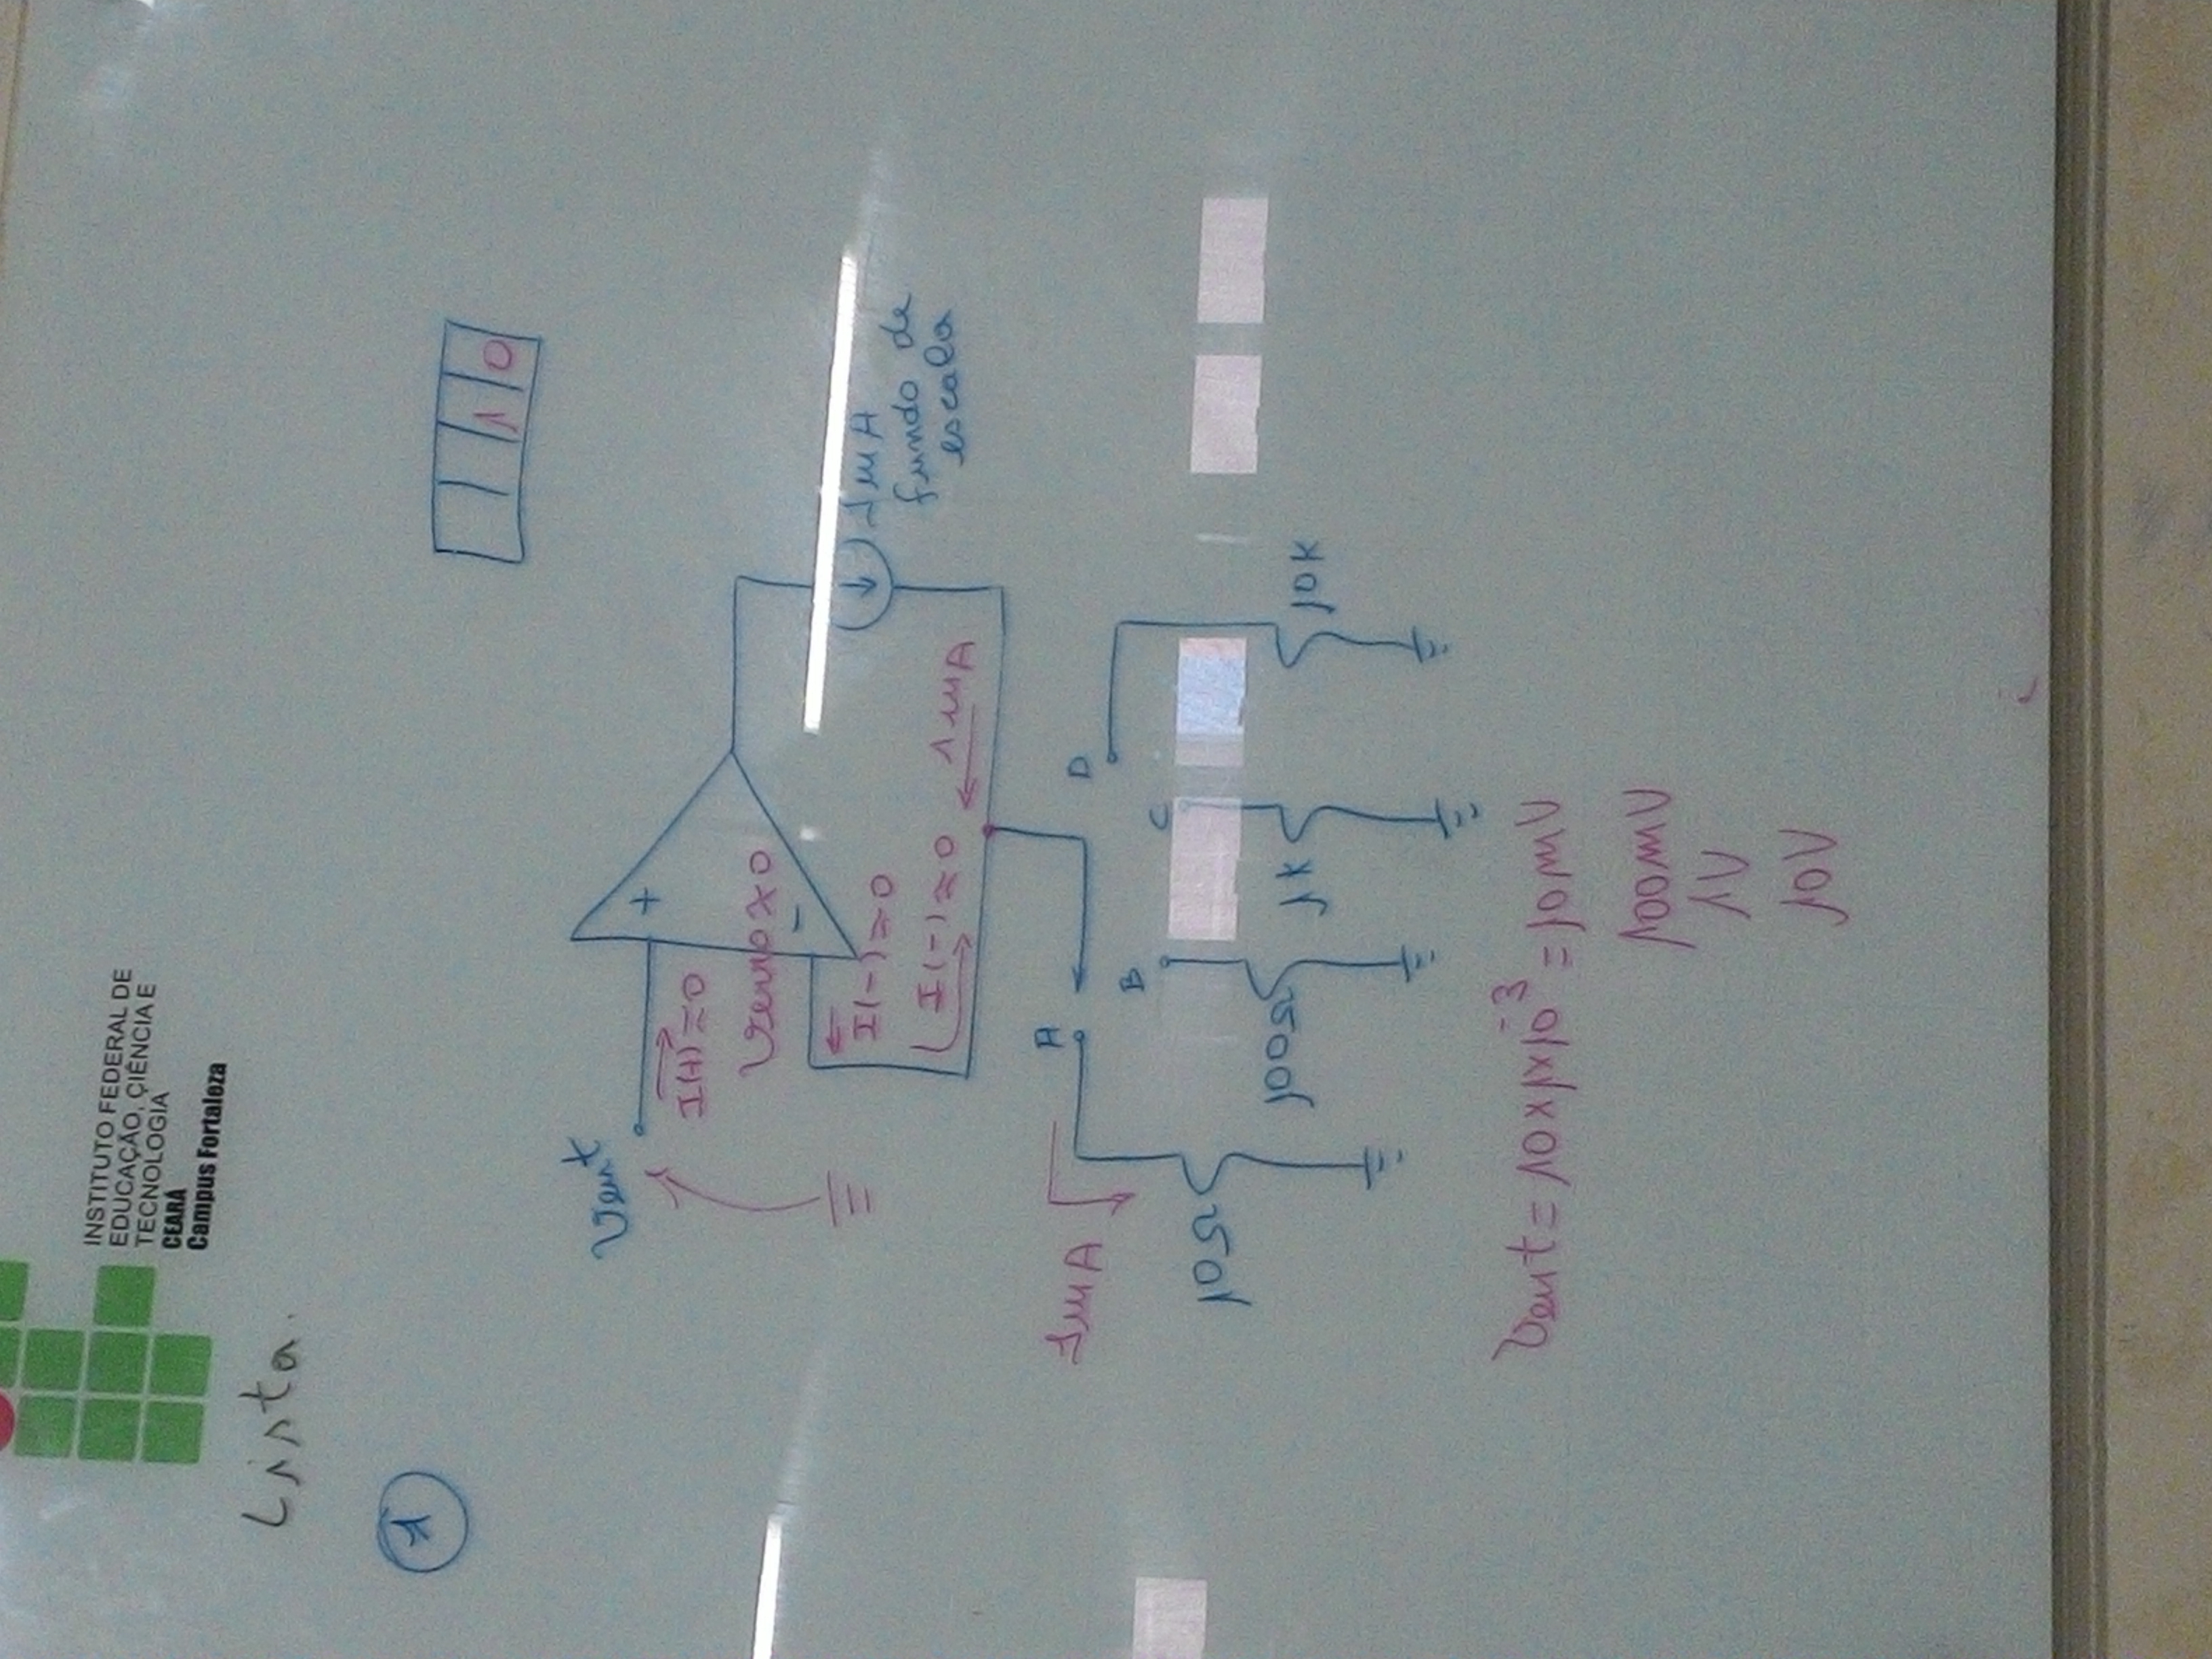 INSTITUTO FEDERAL DE
EDUCAÇÃO, CIÊNCIA E
TECNOLOGIA
CEARÁ
Campus Fortaleza
Lista.
1
1 0
Vent
+
I(+)≈0
Verro≈0
-
I(-)≈0
1mA
fundo de
escala
I(-)≈0
1mA
1mA
A
D
B
C
10Ω
100Ω
1K
10K
Vent = 10x1x10⁻³ = 10mV
100mV
1V
10V